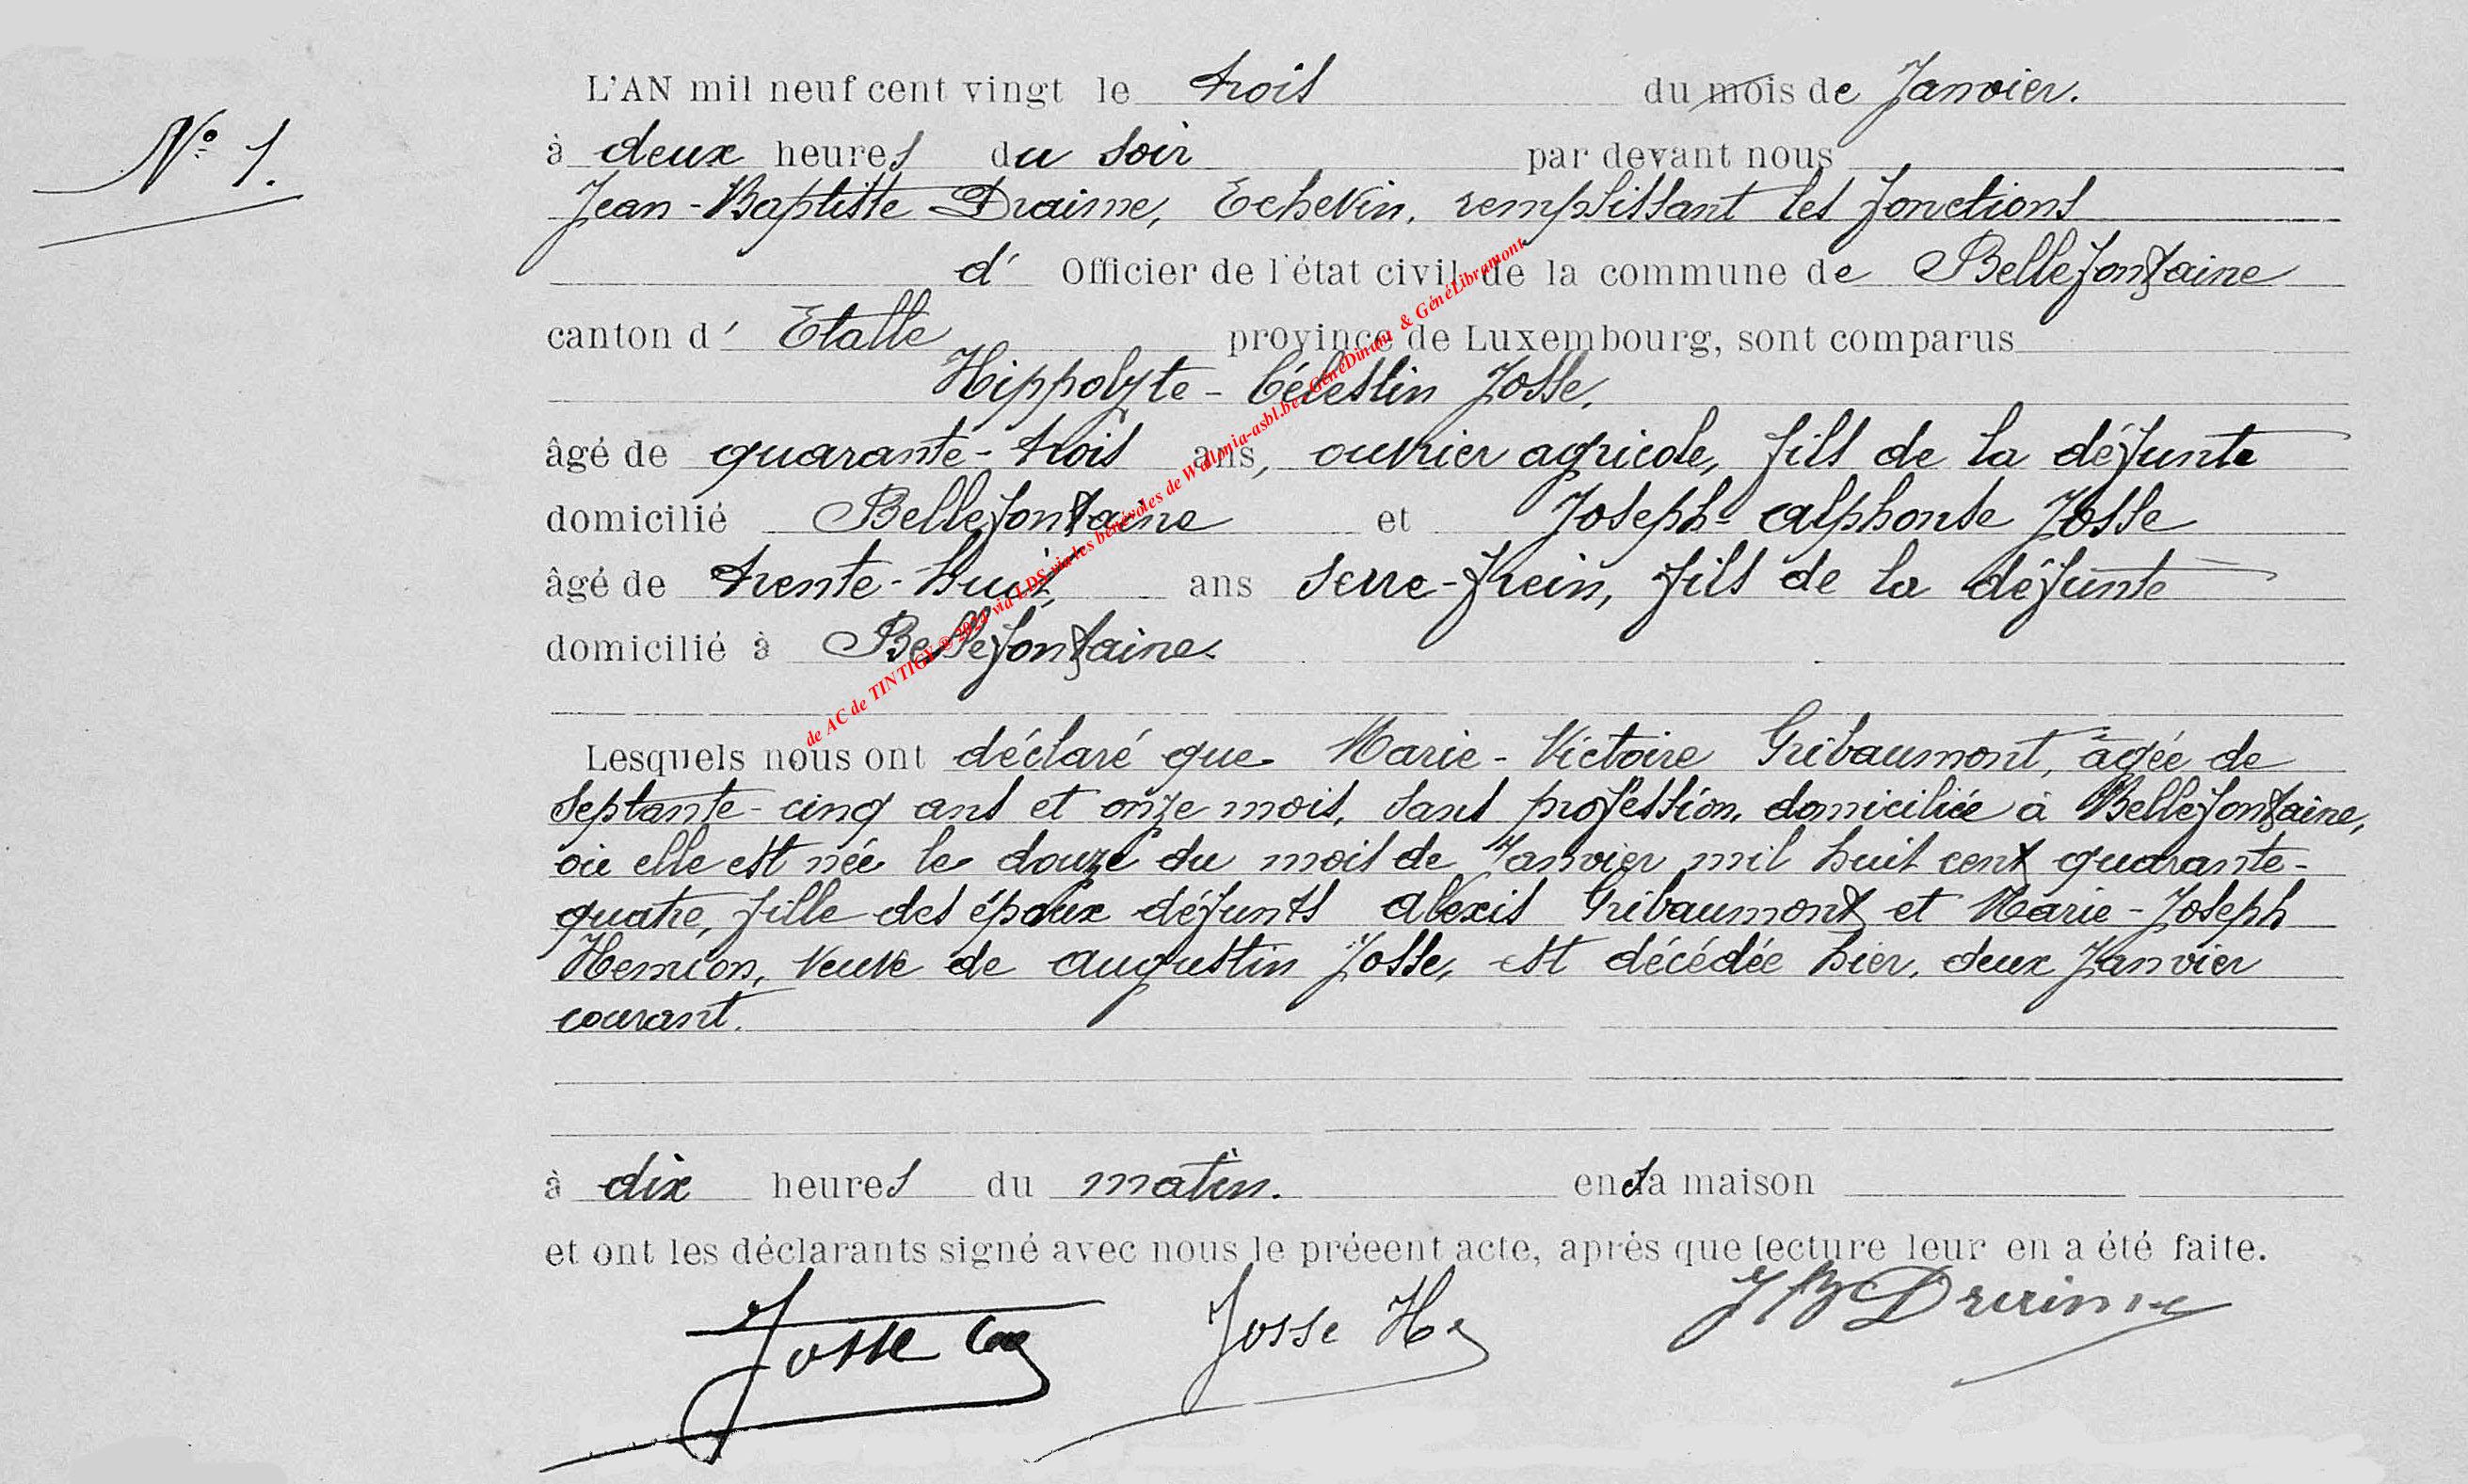 N° 1.
L'AN mil neuf cent vingt le trois du mois de Janvier.
à deux heures du soir par devant nous
Jean-Baptiste Draime, Echevin, remplissant les fonctions
d' Officier de l'état civil de la commune de Bellefontaine
canton d' Etalle province de Luxembourg, sont comparus
Hippolyte-Célestin Josse,
âgé de quarante-trois ans, ouvrier agricole, fils de la défunte
domicilié Bellefontaine et Joseph-Alphonse Josse
âgé de trente-huit ans serre-frein, fils de la défunte
domicilié à Bellefontaine.
Lesquels nous ont déclaré que Marie-Victoire Gribaumont, âgée de
septante-cinq ans et onze mois, sans profession, domiciliée à Bellefontaine,
où elle est née le douze du mois de Janvier mil huit cent quarante-
quatre, fille des époux défunts Alexis Gribaumont et Marie-Joseph
Henrion, veuve de Augustin Josse, est décédée hier, deux Janvier
courant.
à dix heures du matin. en sa maison
et ont les déclarants signé avec nous le préeent acte, après que lecture leur en a été faite.
Josse Josse H JB Draime
de AC de TINTIGNY © 2021 via LDS via les bénévoles de Wallonia-asbl.be, GénéDinant & GénéLibramont